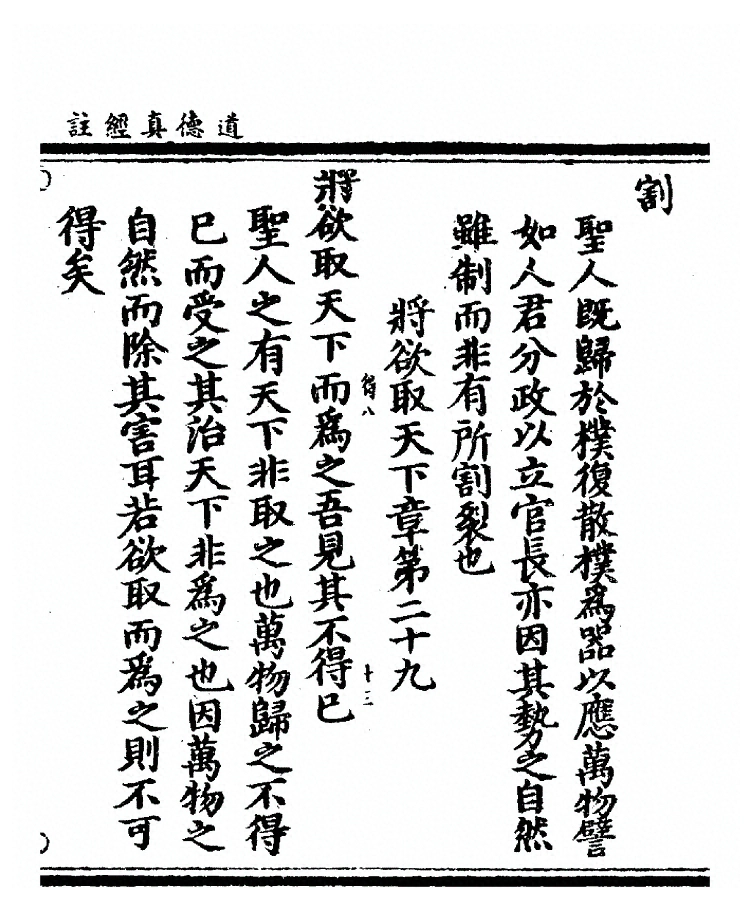 道德真經註
割
聖人旣歸於樸復散樸爲器以應萬物譬
如人君分政以立官長亦因其勢之自然
雖制而非有所割裂也
將欲取天下章第二十九
得八
十三
將欲取天下而爲之吾見其不得已
聖人之有天下非取之也萬物歸之不得
已而受之其治天下非爲之也因萬物之
自然而除其害耳若欲取而爲之則不可
得矣